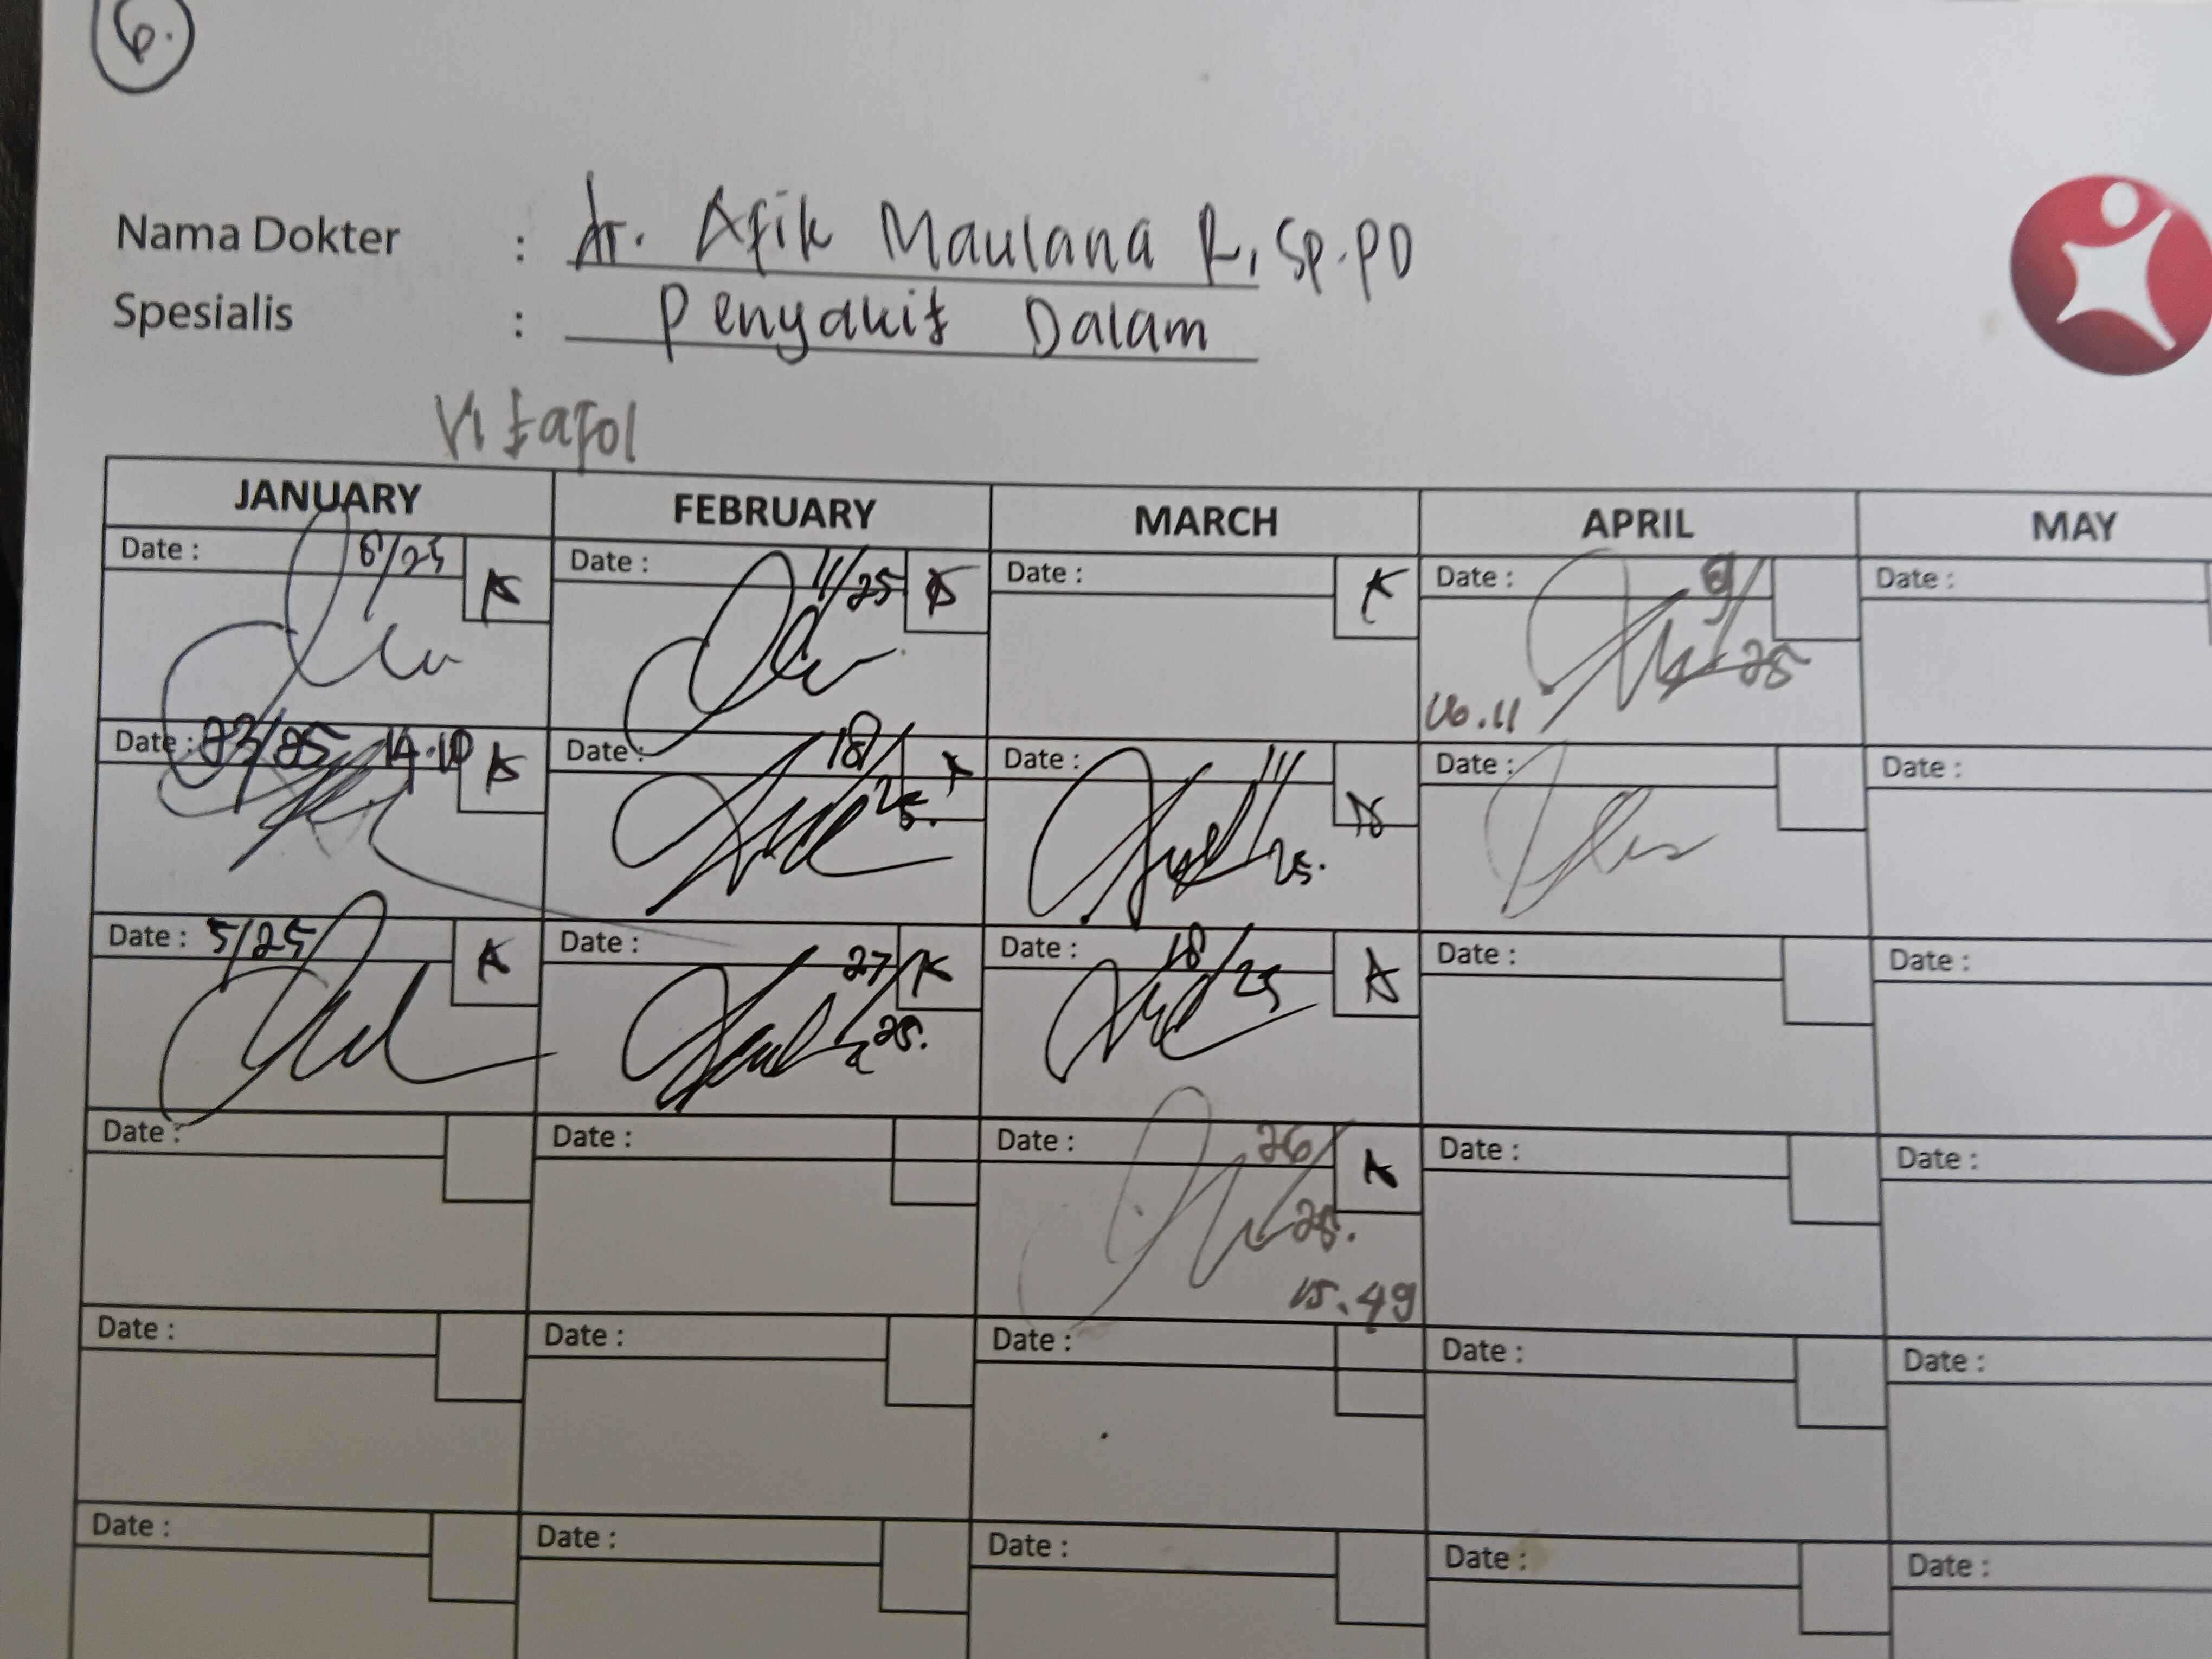 6.
Nama Dokter : dr. Afik Maulana R, Sp.PD
Spesialis : Penyakit Dalam
Vitafol
JANUARY FEBRUARY MARCH APRIL MAY
Date : 8/25 Date : 11/25 Date : Date : 25 Date :
16.11
Date : 23/25 14.10 Date : 18/25. Date : 11/25. Date : Date :
Date : 5/25 Date : 27/25. Date : 18/25 Date : Date :
Date : Date : Date : 26/25. Date : Date :
15.49
Date : Date : Date : Date : Date :
Date : Date : Date : Date : Date :